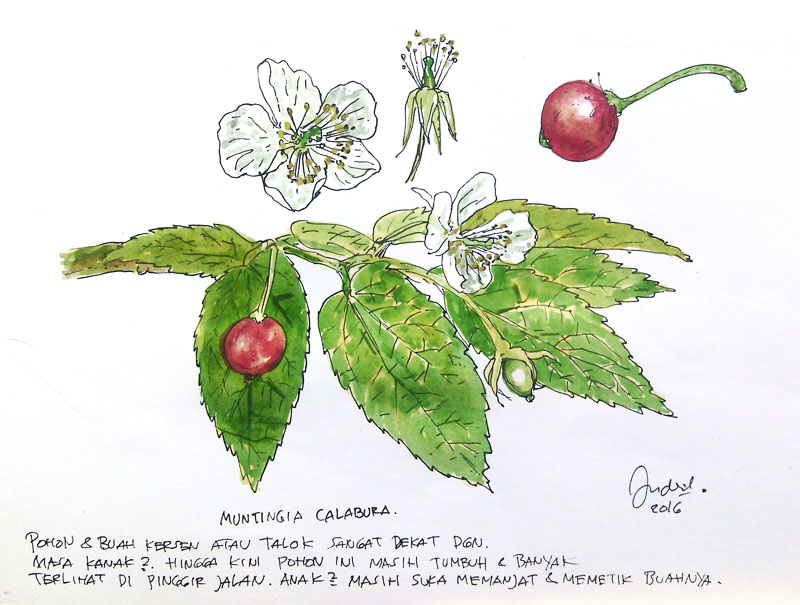 MUNTINGIA CALABURA.
POHON & BUAH KERSEN ATAU TALOK SANGAT DEKAT DGN.
MASA KANAK2. HINGGA KINI POHON INI MASIH TUMBUH & BANYAK
TERLIHAT DI PINGGIR JALAN. ANAK2 MASIH SUKA MEMANJAT & MEMETIK BUAHNYA.
2016